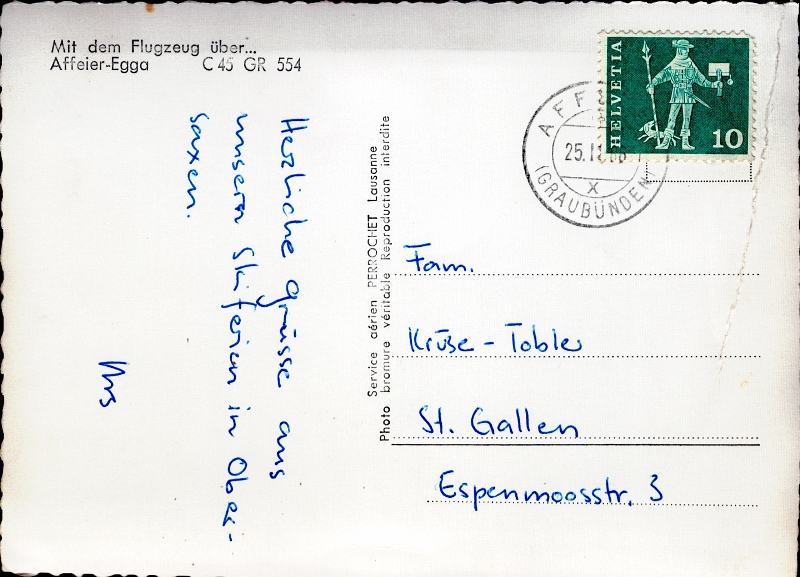 Mit dem Flugzeug über...
Affeier-Egga C 45 GR 554
Herzliche Grüsse aus
unsern Skiferien in Ober-
saxen.
Urs
Service aérien PERROCHET Lausanne
Photo bromure véritable Reproduction interdite
HELVETIA
10
AFF
25.
X
(GRAUBÜNDEN)
Fam.
Krüse - Tobler
St. Gallen
Espenmoosstr. 3